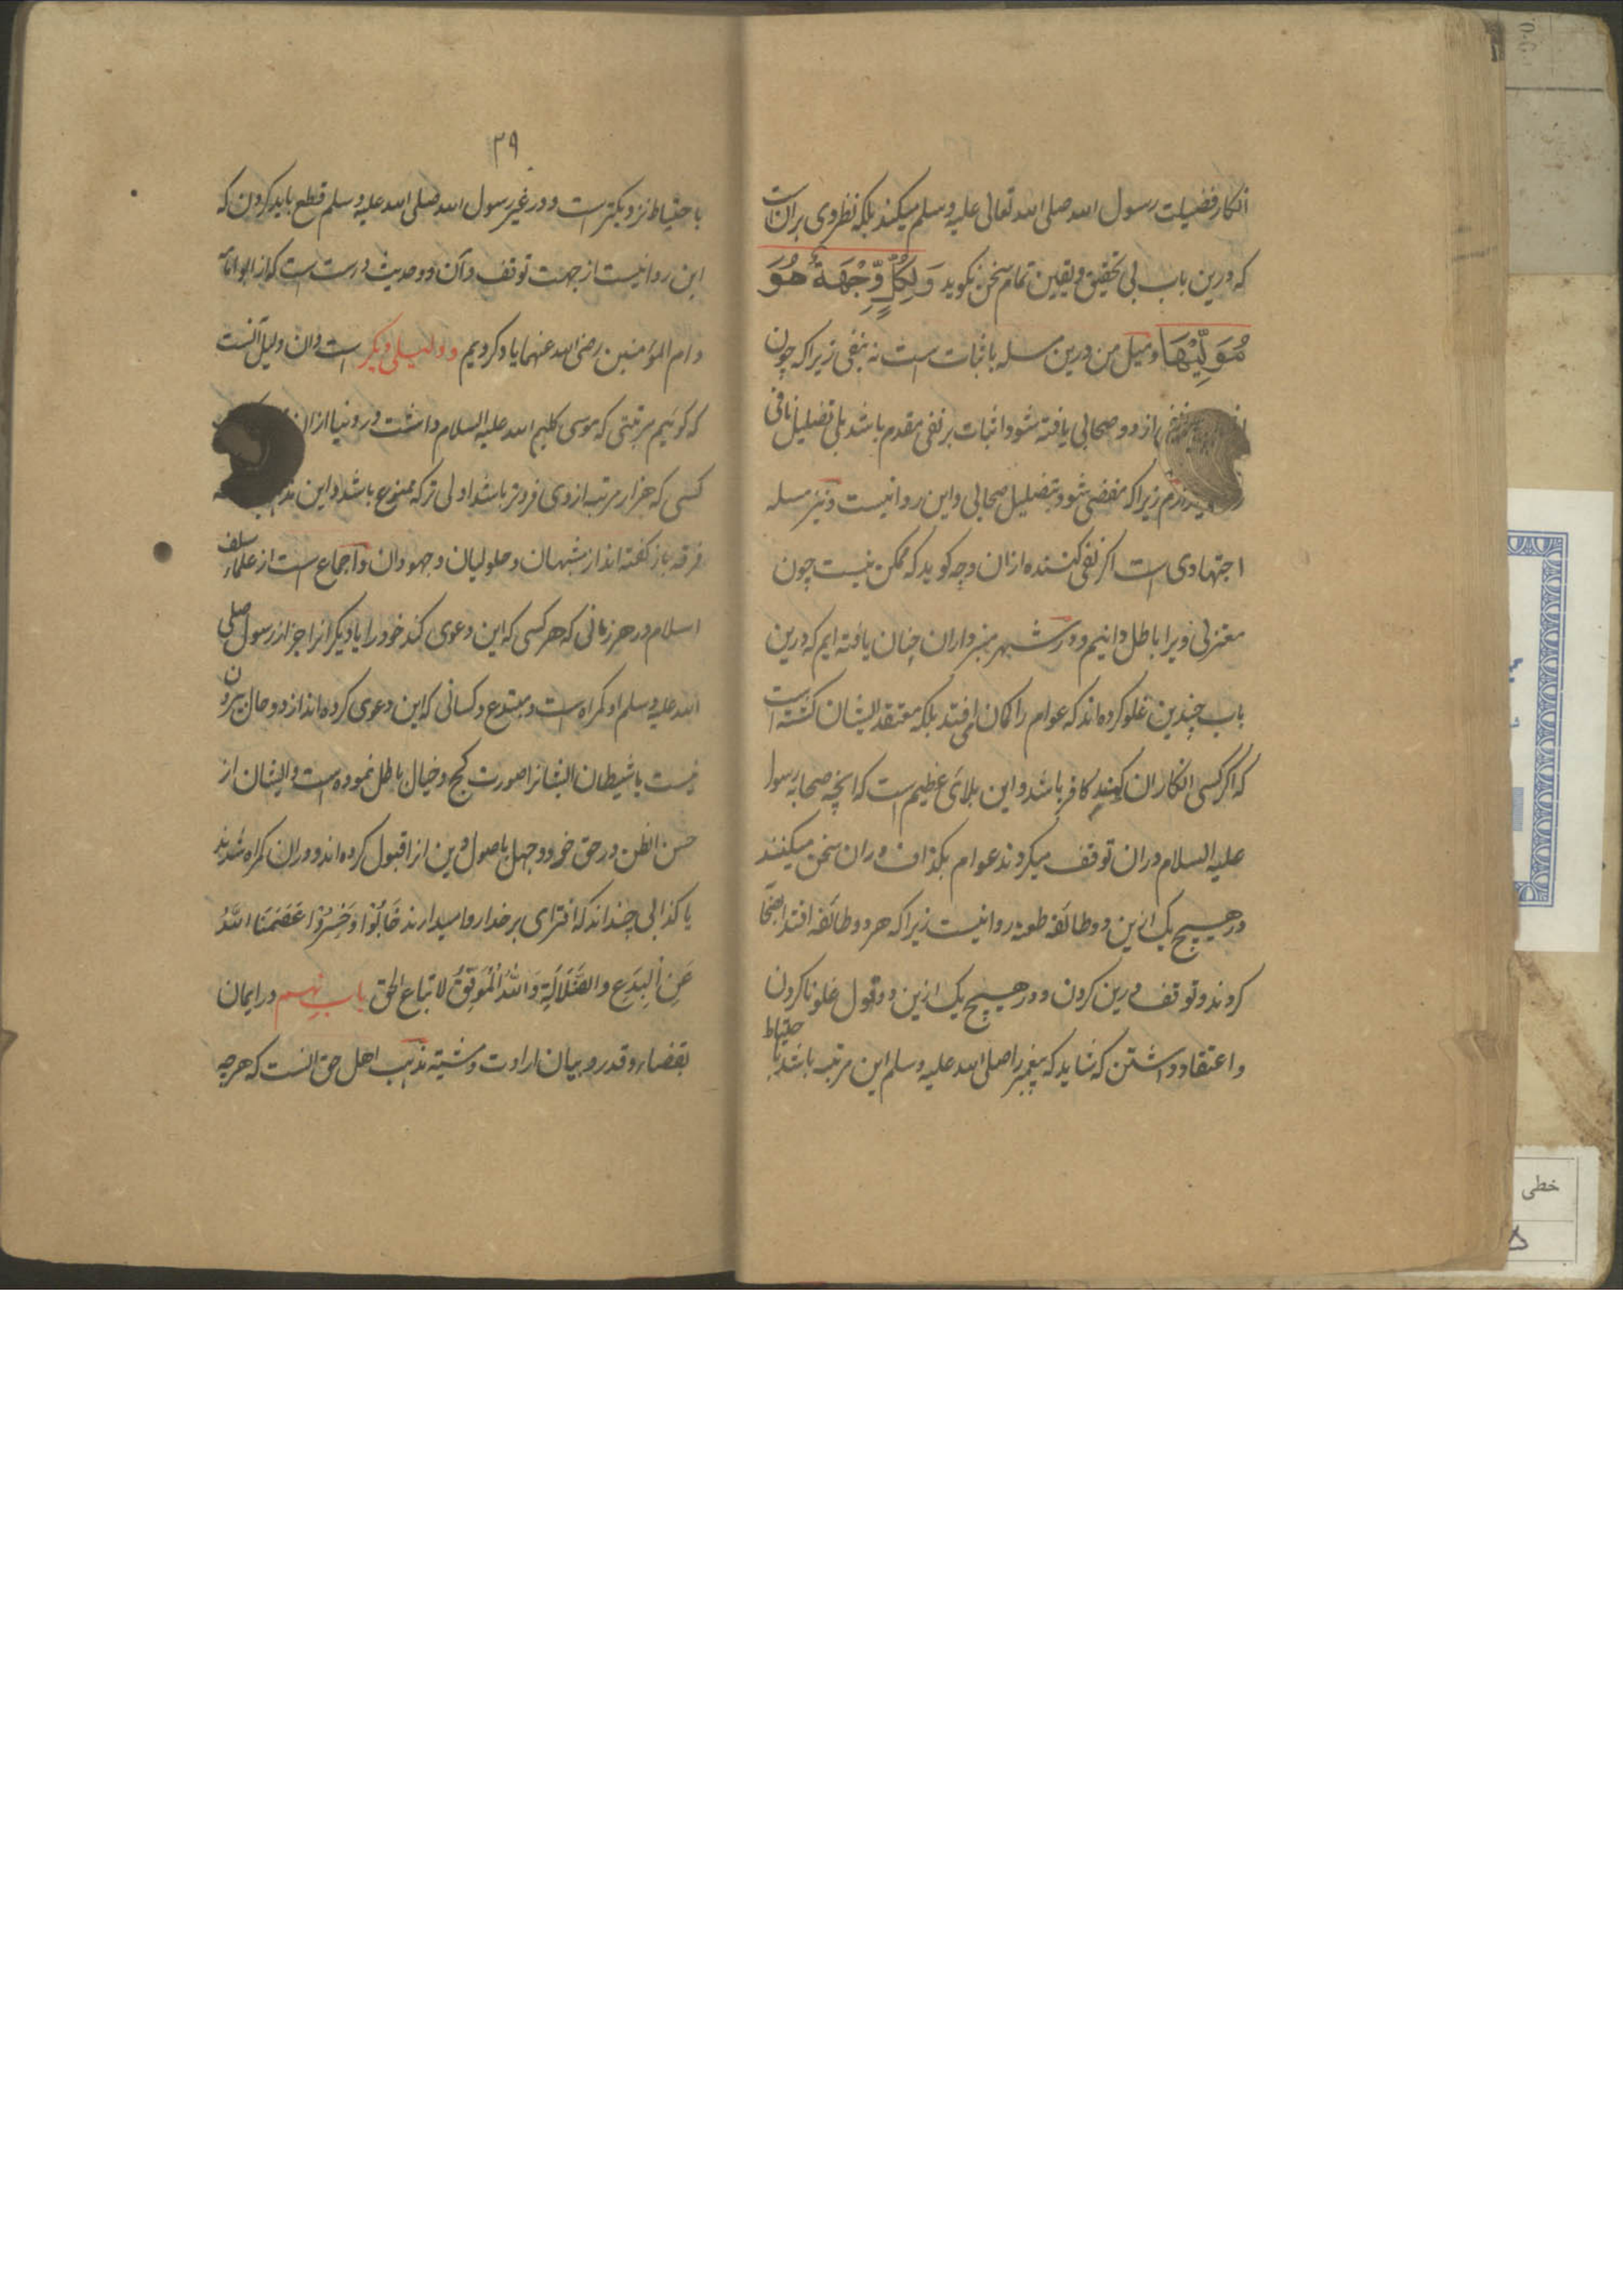 انکار فضیلت رسول الله صلی الله تعالی علیه وسلم میکند بلکه نظر وی بران است
که درین باب بی تحقیق ویقین تمام سخن نکوید وَلِكُلٍّ وِّجْهَةٌ هُوَ
مُوَلِّيْهَا ومیل من درین مسله باثبات است نه بنفی زیرا که چون
از دو صحابی یافته شود اثبات بر نفی مقدم باشد بلی تضلیل نافی
زیرا که مفضی شود بتضلیل صحابی واین روا نیست ونیز مسله
اجتهادی است اکر نفی کننده ازان وجه کوید که ممکن نیست چون
معتزلی ویرا باطل دانیم ودر شهر سبزواران چنان یافته ایم که درین
باب چندین غلو کرده اند که عوام را کمان می افتد بلکه معتقد ایشان کشته است
که اکر کسی انکار ان کند کافر باشد واین بلای عظیم است که انچه صحابه رسول
علیه السلام دران توقف میکردند عوام بکزاف دران سخن میکنند
ودر هیچ یک ازین دو طائفه طعنه روا نیست زیرا که هر دو طائفه اقتدا بصحابا
کردند وتوقف درین کردن ودر هیچ یک ازین دو قول غلو ناکردن
واعتقاد داشتن که شاید که پیغمبر را صلی الله علیه وسلم این مرتبه باشد با حتیاط
۳۹
باحتیاط نزدیکتر است ودر غیر رسول الله صلی الله علیه وسلم قطع باید کردن که
این روا نیست از جهت توقف وآن دو حدیث درست است که از ابو امامة
وام المؤمنین رضی الله عنهما یاد کردیم ودلیلی دیکر است وان دلیل آنست
که کوئیم مرتبتی که موسی کلیم الله علیه السلام داشت در دنیا ازان
کسی که هزار مرتبه از وی فروتر باشد اولی تر که ممنوع باشد واین
فرقه باز کفته اند از مشبهان وحلولیان وجهودان واجماع است از علماء سلف
اسلام در هر زمانی که هر کسی که این دعوی کند خود را یا دیکرانرا جز از رسول صلی
الله علیه وسلم او کمراه است ومبتدع وکسانی که این دعوی کرده اند از دو حال بیرون
نیست یا شیطان ایشانرا صورت کج وخیال باطل نموده است وایشان از
حسن الظن در حق خود وجهل باصول دین انرا قبول کرده اند ودران کمراه شدند
یا کذابی چند اند که افترای بر خدا روا میدارند خَابُوْا وَخَسِرُوْا عَصَمَنَا اللّٰهُ
عَنِ الْبِدَعِ والضَّلَالَةِ وَاللّٰهُ الْمُوَفِّقُ لاتباع الحق باب نهم در ایمان
بقضاء وقدر وبیان ارادت ومشیة مذهب اهل حق انست که هر چه
خطی
۵